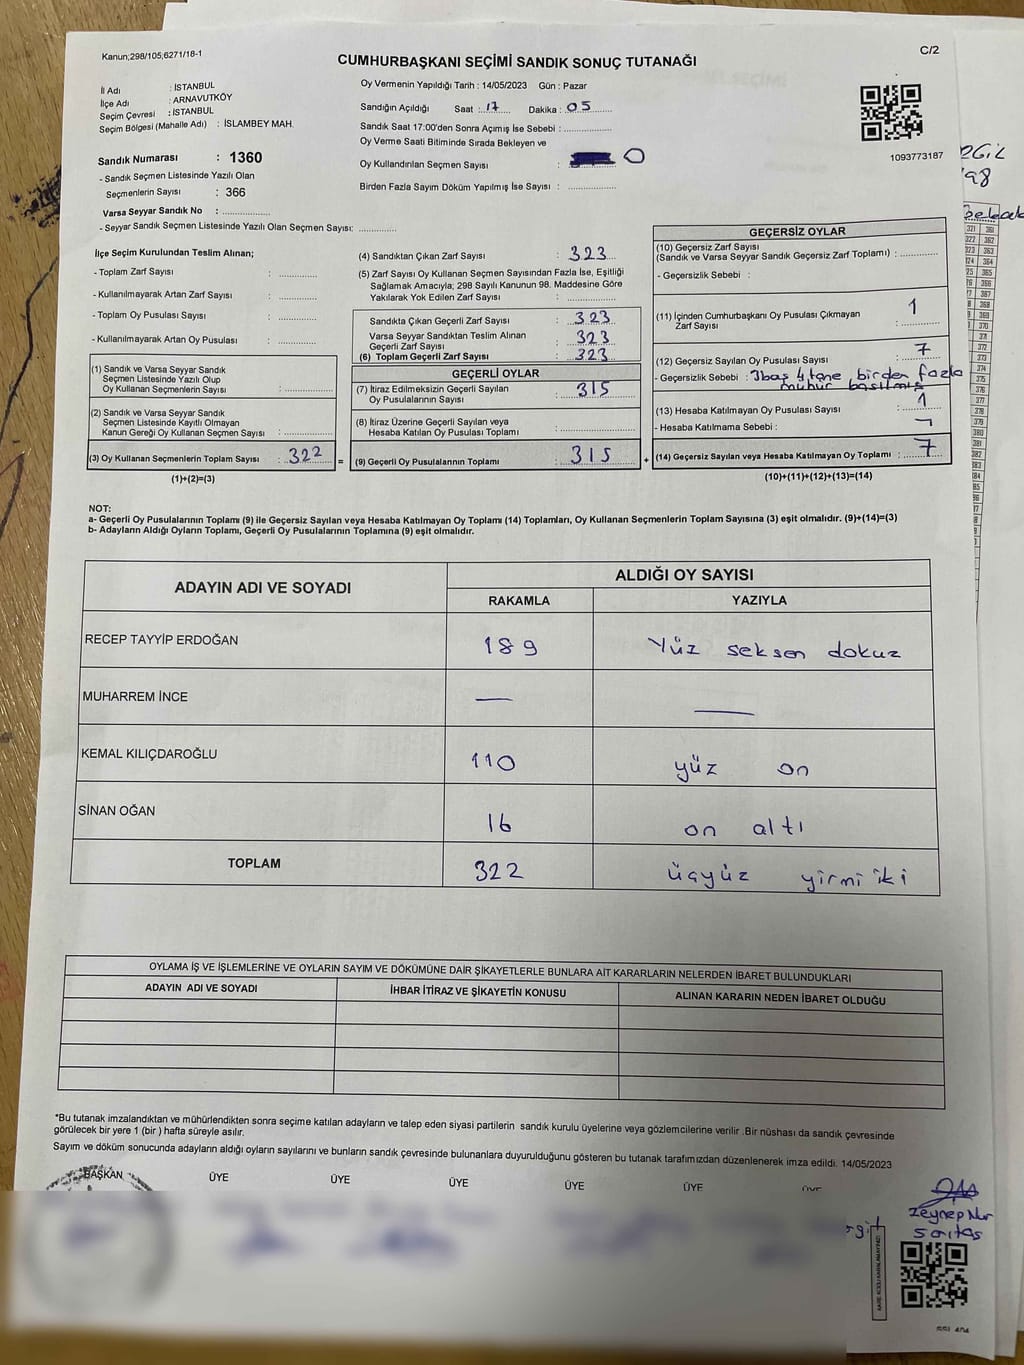 Kanun;298/105;6271/18-1
C/2
CUMHURBAŞKANI SEÇİMİ SANDIK SONUÇ TUTANAĞI
İl Adı : İSTANBUL
İlçe Adı : ARNAVUTKÖY
Seçim Çevresi : İSTANBUL
Seçim Bölgesi (Mahalle Adı) : İSLAMBEY MAH.
Sandık Numarası : 1360
- Sandık Seçmen Listesinde Yazılı Olan
Seçmenlerin Sayısı : 366
Varsa Seyyar Sandık No : ..................
- Seyyar Sandık Seçmen Listesinde Yazılı Olan Seçmen Sayısı: ..............
Oy Vermenin Yapıldığı Tarih : 14/05/2023 Gün : Pazar
Sandığın Açıldığı Saat : 17 Dakika : 05
Sandık Saat 17:00'den Sonra Açımış İse Sebebi : ..................
Oy Verme Saati Bitiminde Sırada Bekleyen ve
Oy Kullandırılan Seçmen Sayısı : 0
Birden Fazla Sayım Döküm Yapılmış İse Sayısı : ..................
1093773187
İlçe Seçim Kurulundan Teslim Alınan;
- Toplam Zarf Sayısı : ..............
- Kullanılmayarak Artan Zarf Sayısı : ..............
- Toplam Oy Pusulası Sayısı : ..............
- Kullanılmayarak Artan Oy Pusulası : ..............
(1) Sandık ve Varsa Seyyar Sandık
Seçmen Listesinde Yazılı Olup
Oy Kullanan Seçmenlerin Sayısı : ..............
(2) Sandık ve Varsa Seyyar Sandık
Seçmen Listesinde Kayıtlı Olmayan
Kanun Gereği Oy Kullanan Seçmen Sayısı : ..............
(3) Oy Kullanan Seçmenlerin Toplam Sayısı : 322
(1)+(2)=(3)
(4) Sandıktan Çıkan Zarf Sayısı : 323
(5) Zarf Sayısı Oy Kullanan Seçmen Sayısından Fazla İse, Eşitliği
Sağlamak Amacıyla; 298 Sayılı Kanunun 98. Maddesine Göre
Yakılarak Yok Edilen Zarf Sayısı : ..............
Sandıkta Çıkan Geçerli Zarf Sayısı : 323
Varsa Seyyar Sandıktan Teslim Alınan
Geçerli Zarf Sayısı : 323
(6) Toplam Geçerli Zarf Sayısı : 323
GEÇERLİ OYLAR
(7) İtiraz Edilmeksizin Geçerli Sayılan
Oy Pusulalarının Sayısı : 315
(8) İtiraz Üzerine Geçerli Sayılan veya
Hesaba Katılan Oy Pusulası Toplamı : ..............
= (9) Geçerli Oy Pusulalarının Toplamı : 315
GEÇERSİZ OYLAR
(10) Geçersiz Zarf Sayısı
(Sandık ve Varsa Seyyar Sandık Geçersiz Zarf Toplamı) : ..............
- Geçersizlik Sebebi :
(11) İçinden Cumhurbaşkanı Oy Pusulası Çıkmayan
Zarf Sayısı : 1
(12) Geçersiz Sayılan Oy Pusulası Sayısı : 7
- Geçersizlik Sebebi : 3 boş 4 tane birden fazla
mühür basılmış
(13) Hesaba Katılmayan Oy Pusulası Sayısı : 1
- Hesaba Katılmama Sebebi :
+ (14) Geçersiz Sayılan veya Hesaba Katılmayan Oy Toplamı : 7
(10)+(11)+(12)+(13)=(14)
NOT:
a- Geçerli Oy Pusulalarının Toplamı (9) ile Geçersiz Sayılan veya Hesaba Katılmayan Oy Toplamı (14) Toplamları, Oy Kullanan Seçmenlerin Toplam Sayısına (3) eşit olmalıdır. (9)+(14)=(3)
b- Adayların Aldığı Oyların Toplamı, Geçerli Oy Pusulalarının Toplamına (9) eşit olmalıdır.
ADAYIN ADI VE SOYADI
ALDIĞI OY SAYISI
RAKAMLA YAZIYLA
RECEP TAYYİP ERDOĞAN 189 Yüz seksen dokuz
MUHARREM İNCE — —
KEMAL KILIÇDAROĞLU 110 yüz on
SİNAN OĞAN 16 on altı
TOPLAM 322 üçyüz yirmi iki
OYLAMA İŞ VE İŞLEMLERİNE VE OYLARIN SAYIM VE DÖKÜMÜNE DAİR ŞİKAYETLERLE BUNLARA AİT KARARLARIN NELERDEN İBARET BULUNDUKLARI
ADAYIN ADI VE SOYADI İHBAR İTİRAZ VE ŞİKAYETİN KONUSU ALINAN KARARIN NEDEN İBARET OLDUĞU
*Bu tutanak imzalandıktan ve mühürlendikten sonra seçime katılan adayların ve talep eden siyasi partilerin sandık kurulu üyelerine veya gözlemcilerine verilir .Bir nüshası da sandık çevresinde
görülecek bir yere 1 (bir ) hafta süreyle asılır.
Sayım ve döküm sonucunda adayların aldığı oyların sayılarını ve bunların sandık çevresinde bulunanlara duyurulduğunu gösteren bu tutanak tarafımızdan düzenlenerek imza edildi. 14/05/2023
BAŞKAN ÜYE ÜYE ÜYE ÜYE ÜYE
Zeynep Nur